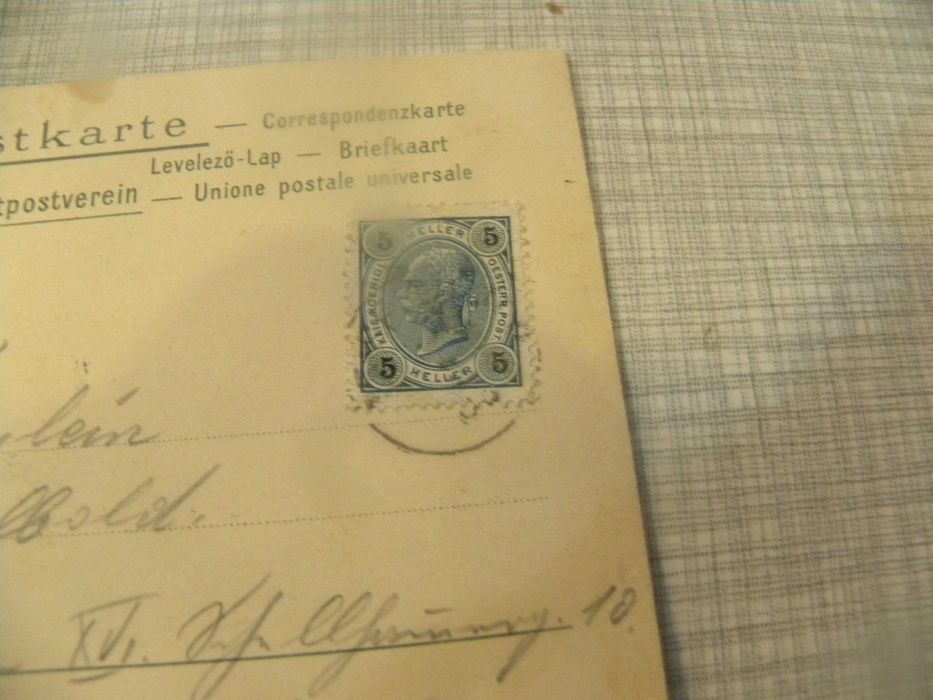 stkarte — Correspondenzkarte
Levelező-Lap — Briefkaart
tpostverein — Unione postale universale
5 HELLER 5
KAIS. KOENIGL. OESTERR. POST.
5 HELLER 5
lein
XVI. 10.